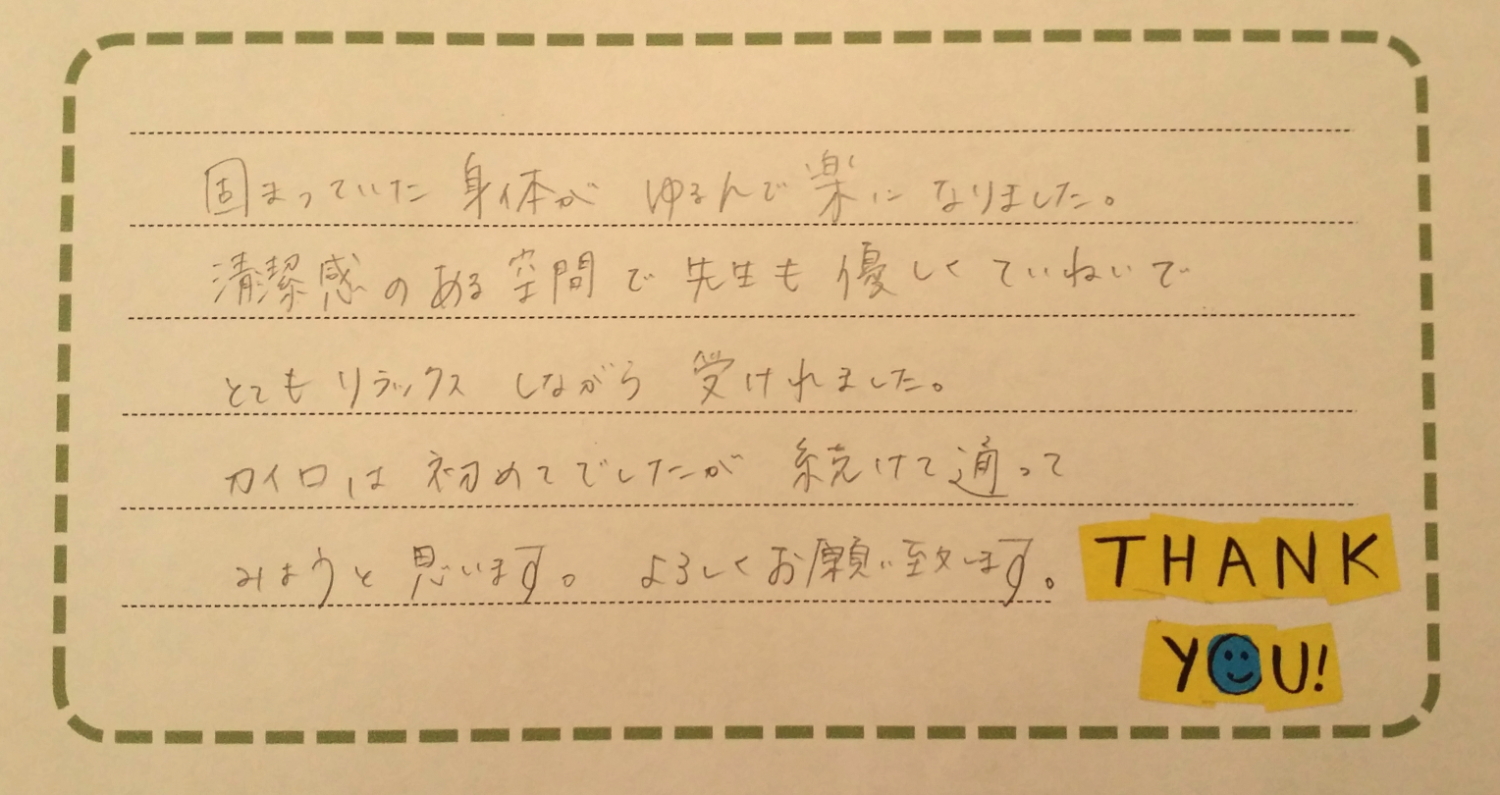 固まっていた身体が ゆるんで楽に なりました。
清潔感のある空間で先生も優しくていねいで
とてもリラックス しながら 受けれました。
カイロは初めてでしたが 続けて通って
みようと思います。 よろしくお願い致します。
THANK
YOU!